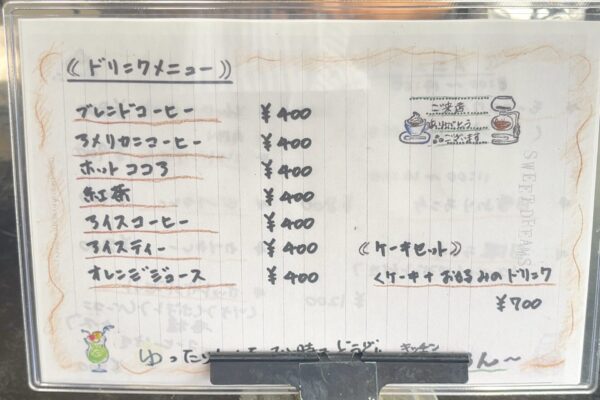 《ドリンクメニュー》
ブレンドコーヒー ￥400
アメリカンコーヒー ￥400
ホットココア ￥400
紅茶 ￥400
アイスコーヒー ￥400
アイスティー ￥400
オレンジジュース ￥400
ご来店
ありがとう
ございます
SWEET DREAMS
《ケーキセット》
＜ケーキ＋お好みのドリンク
￥700
ゆったり
キッチン